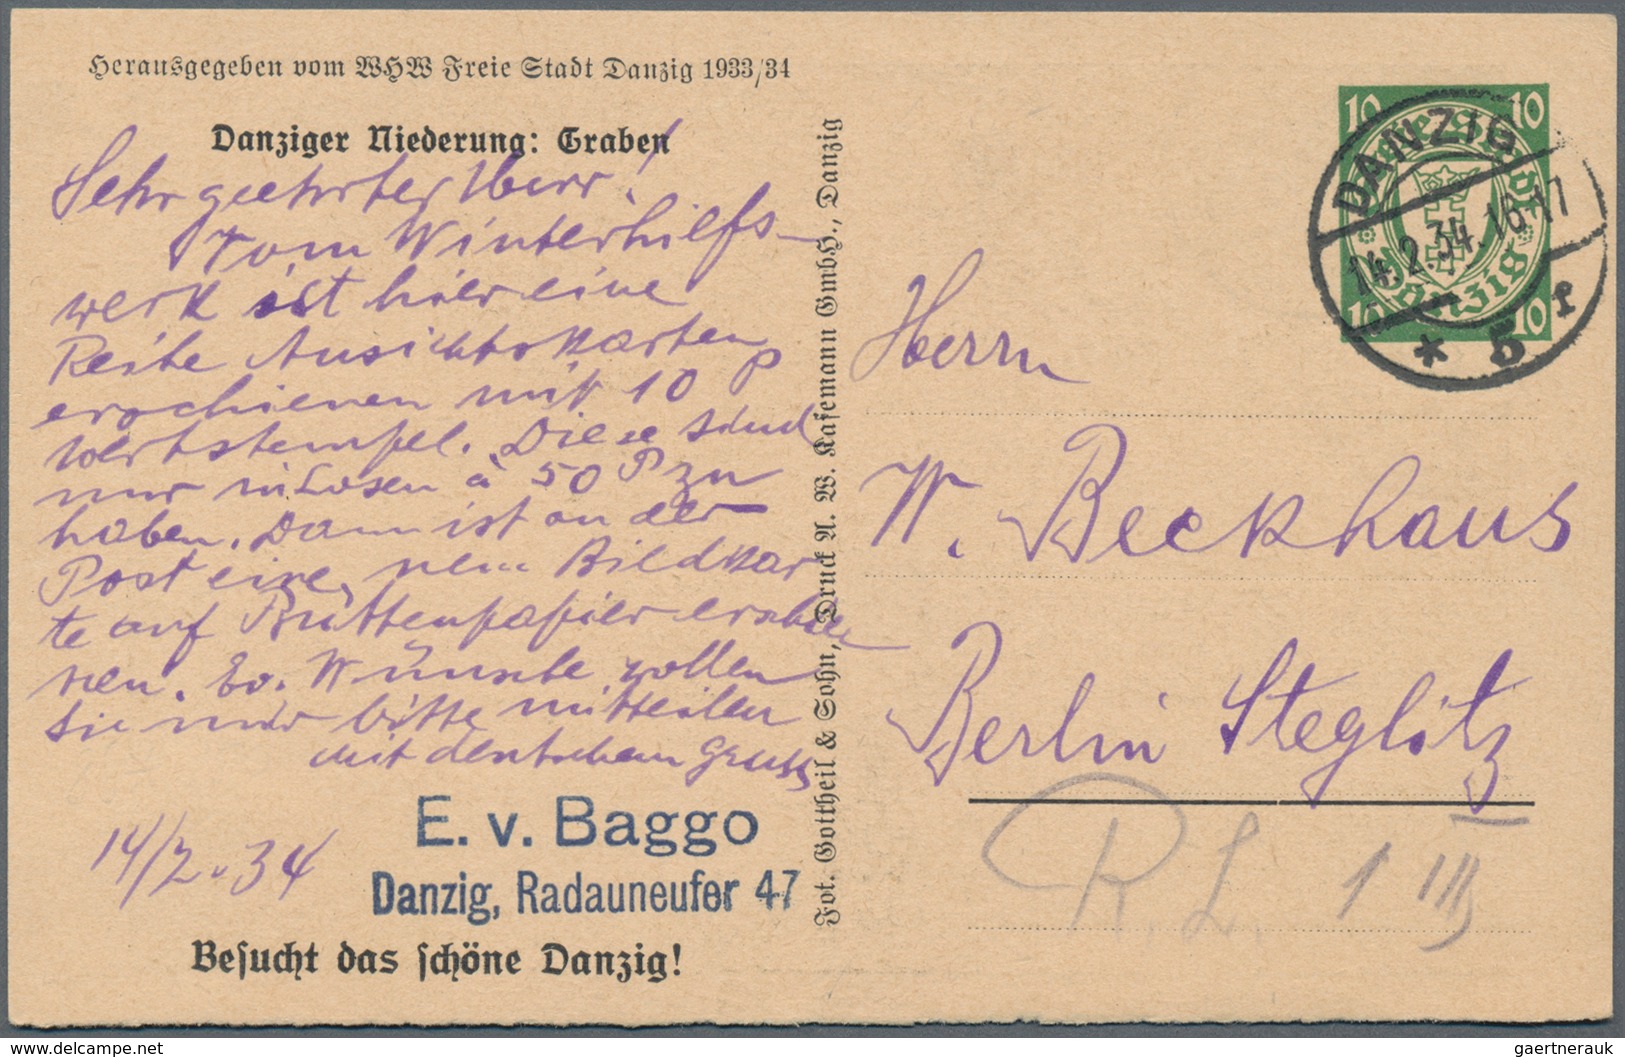 Herausgegeben vom WHW Freie Stadt Danzig 1933/34
Danziger Niederung: Graben
Sehr geehrter Herr!
Vom Winterhilfs-
werk ist hier eine
Reihe Ansichtskarten
erschienen mit 10 P
Wertstempel. Diese sind
nur in Losen à 50 P zu
haben. Dann ist an der
Post eine neue Bildkar
te auf Büttenpapier erschie
nen. Ev. Wünsche wollen
Sie mir bitte mitteilen
mit deutschem Gruss
14/2.34
E. v. Baggo
Danzig, Radauneufer 47
Besucht das schöne Danzig!
Fot. Gottheil & Sohn, Druck A. W. Kafemann GmbH., Danzig
10 10
10 10
DANZIG
14.2.34.16-17
* 5 f
Herrn
W. Beckhaus
Berlin Steglitz
R. L. 1 III
gaertnerauk
delcampe.net